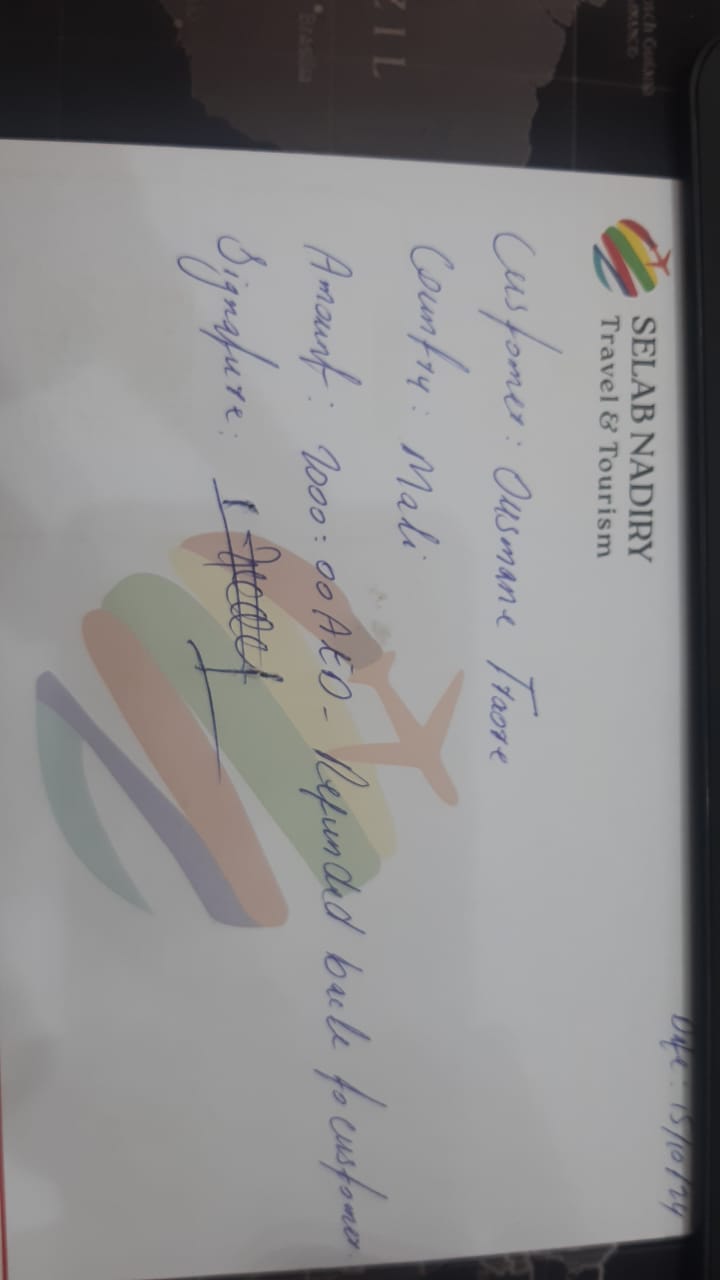 SELAB NADIRY
Travel & Tourism
Date: 15/10/24
Customer: Ousmane Traore
Country: Mali
Amount: 2000:00 AED - Refunded back to customer.
Signature:
ZIL
Brasilia